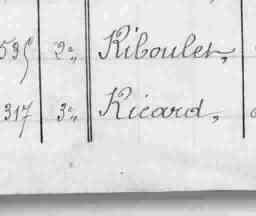 535 2º, Riboulet,
317 3º, Ricard,